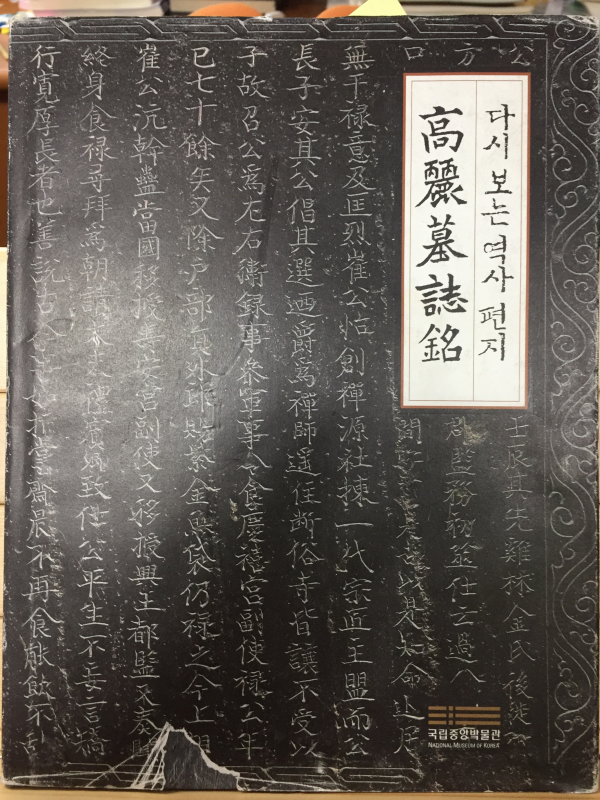 다시 보는 역사 편지
高麗墓誌銘
公
其先雞林金氏後徙
方
郡監務初筮仕云過八
口
間 以是知命止尼
無干祿意及匡烈崔公怡創禪源社揀一代宗匠主盟而公
長子安其公倡其選迺爵爲禪師遥住斷俗寺皆讓不受以
子故召公爲左右衛録事叅軍事令食慶禧宮副使祿公年
已七十餘矣又除户部員外郎賜紫金魚袋仍祿之今上
崔公沆幹蠱當國移授 官副使又移授興王都監又奏
終身食祿尋拜爲朝請大夫 致仕公平生不妄言矯
行寬厚長者也善説 齋晨不再食 飲不乱
국립중앙박물관
NATIONAL MUSEUM OF KOREA